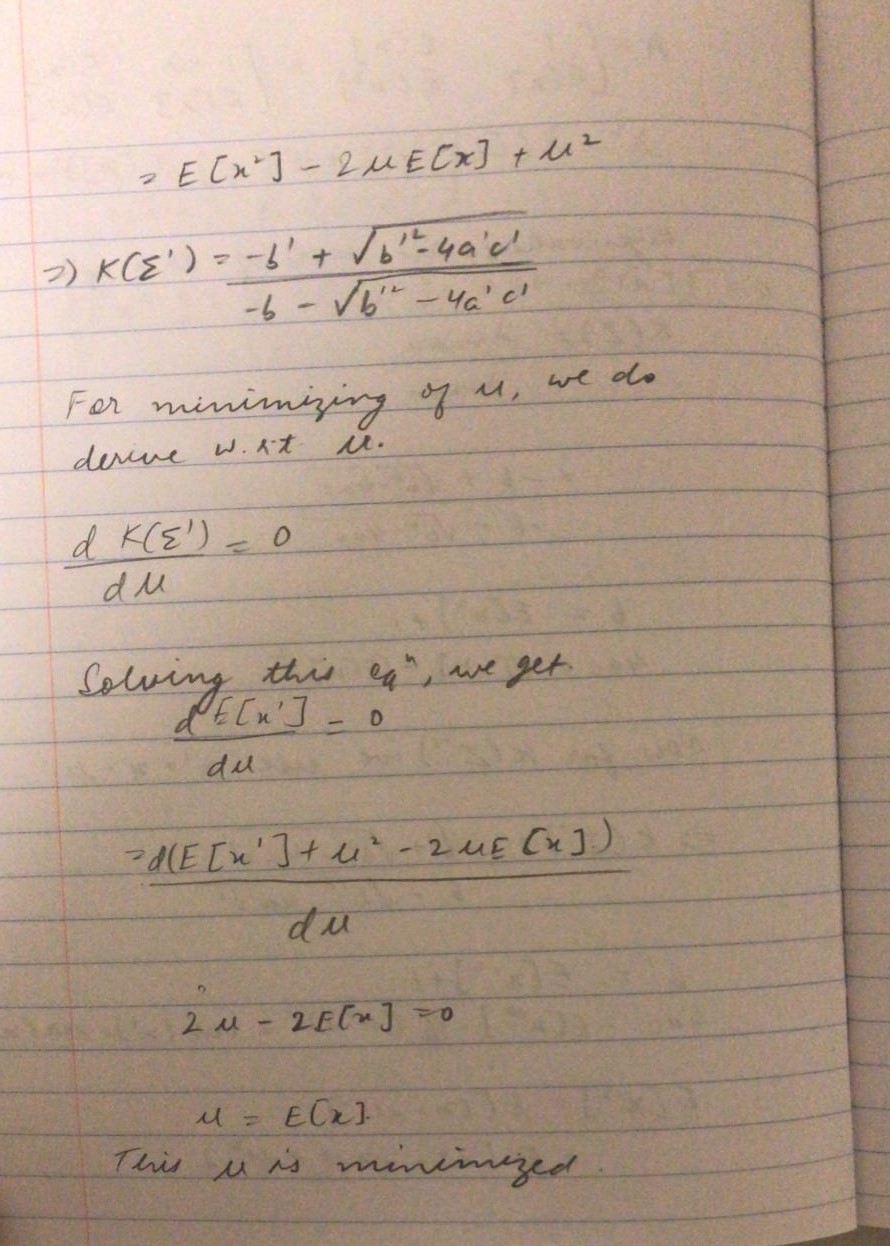 = E[x²] - 2μE[x] + μ²
=) K(Σ') = -b' + √b'² - 4a'c'
-b - √b'² - 4a'c'
For minimizing of μ, we do
derive w.r.t μ.
d K(Σ') = 0
dμ
Solving this eqⁿ, we get.
dE[x'] = 0
dμ
=d(E[x'] + μ² - 2μE[x])
dμ
2μ - 2E[x] = 0
μ = E[x].
This μ is minimized.